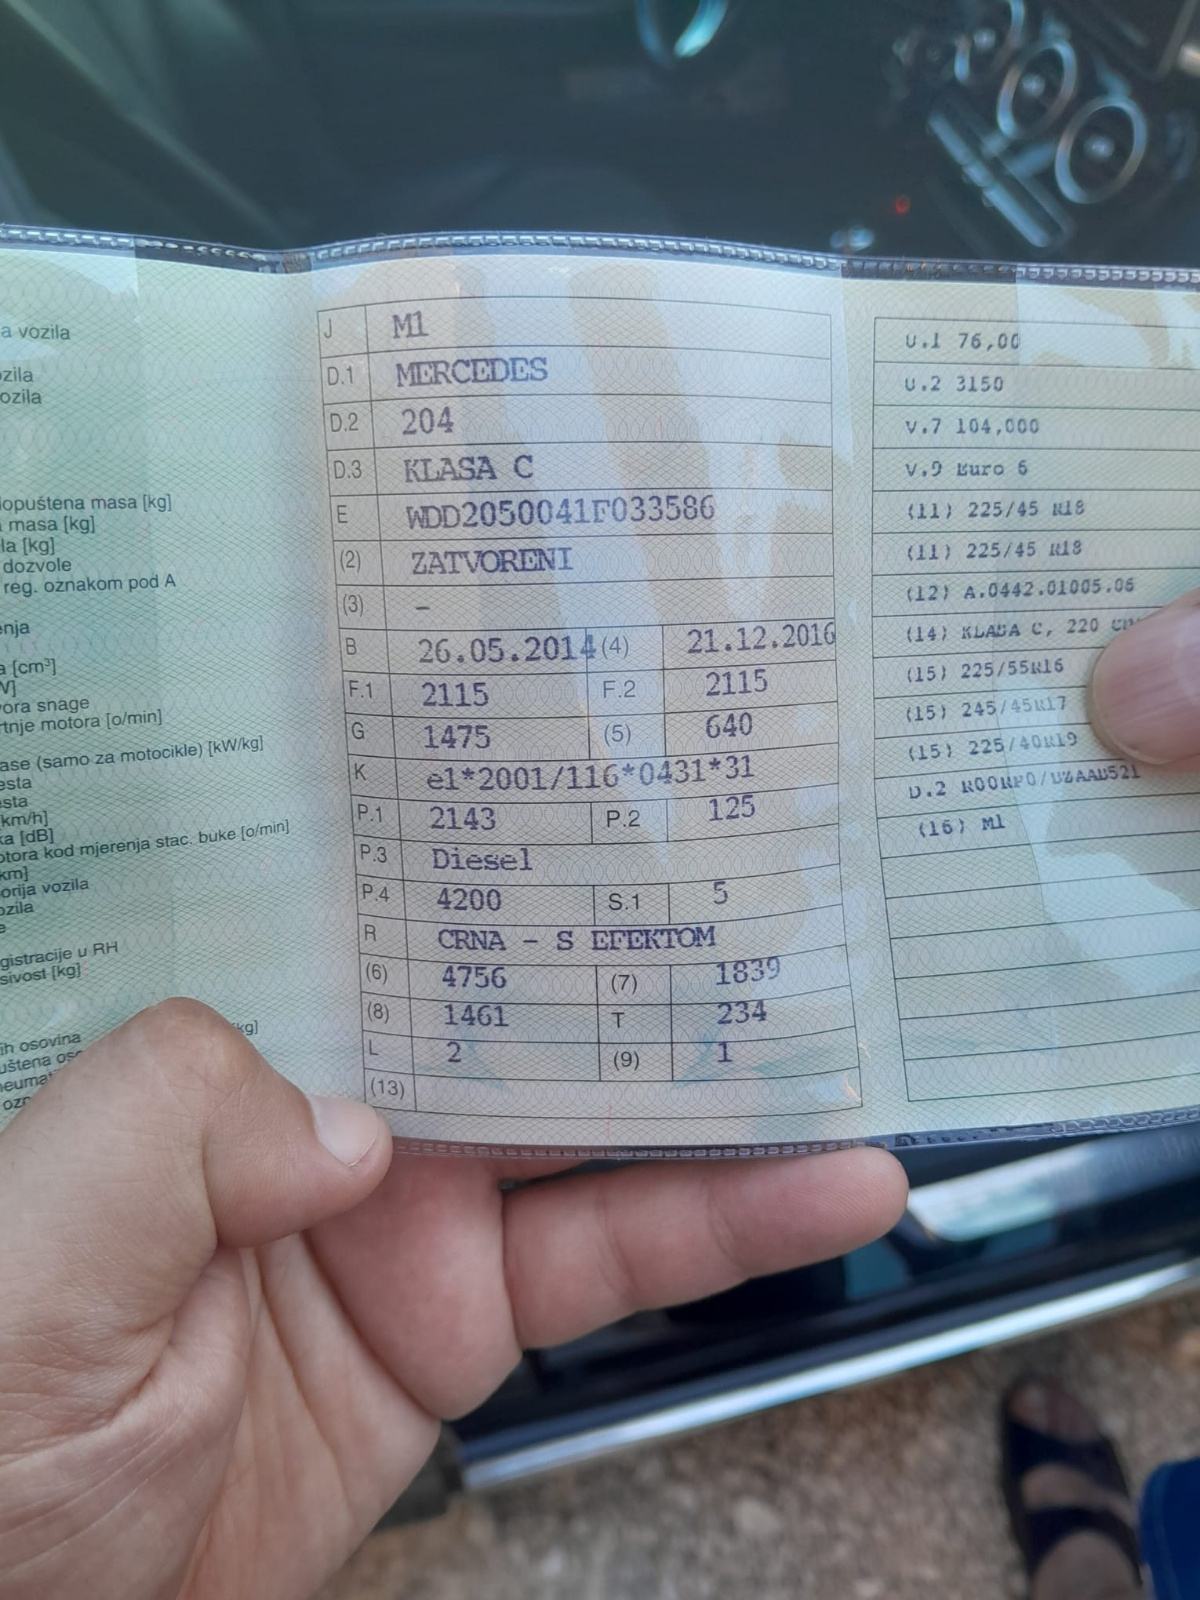 a vozila
zila
ozila
lopuštena masa [kg]
masa [kg]
la [kg]
dozvole
reg. oznakom pod A
enja
a [cm³]
V]
vora snage
rtnje motora [o/min]
ase (samo za motocikle) [kW/kg]
esta
esta
[km/h]
ka [dB]
otora kod mjerenja stac. buke [o/min]
km]
orija vozila
ozila
e
gistracije u RH
sivost [kg]
kg]
ih osovina
uštena oso
neumat
ozn
J M1
D.1 MERCEDES
D.2 204
D.3 KLASA C
E WDD2050041F033586
(2) ZATVORENI
(3) –
B 26.05.2014 (4) 21.12.2016
F.1 2115 F.2 2115
G 1475 (5) 640
K e1*2001/116*0431*31
P.1 2143 P.2 125
P.3 Diesel
P.4 4200 S.1 5
R CRNA – S EFEKTOM
(6) 4756 (7) 1839
(8) 1461 T 234
L 2 (9) 1
(13)
U.1 76,00
U.2 3150
V.7 104,000
V.9 Euro 6
(11) 225/45 R18
(11) 225/45 R18
(12) A.0442.01005.06
(14) KLASA C, 220
(15) 225/55R16
(15) 245/45R17
(15) 225/40R19
D.2
(16) M1